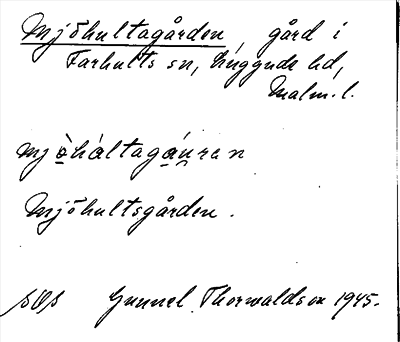 Mjöhultagården, gård i
Farhults sn, Luggude hd,
Malm. l.
mjòháltagáuren
Mjöhultsgården.
Gunnel Thorwaldson 1945.